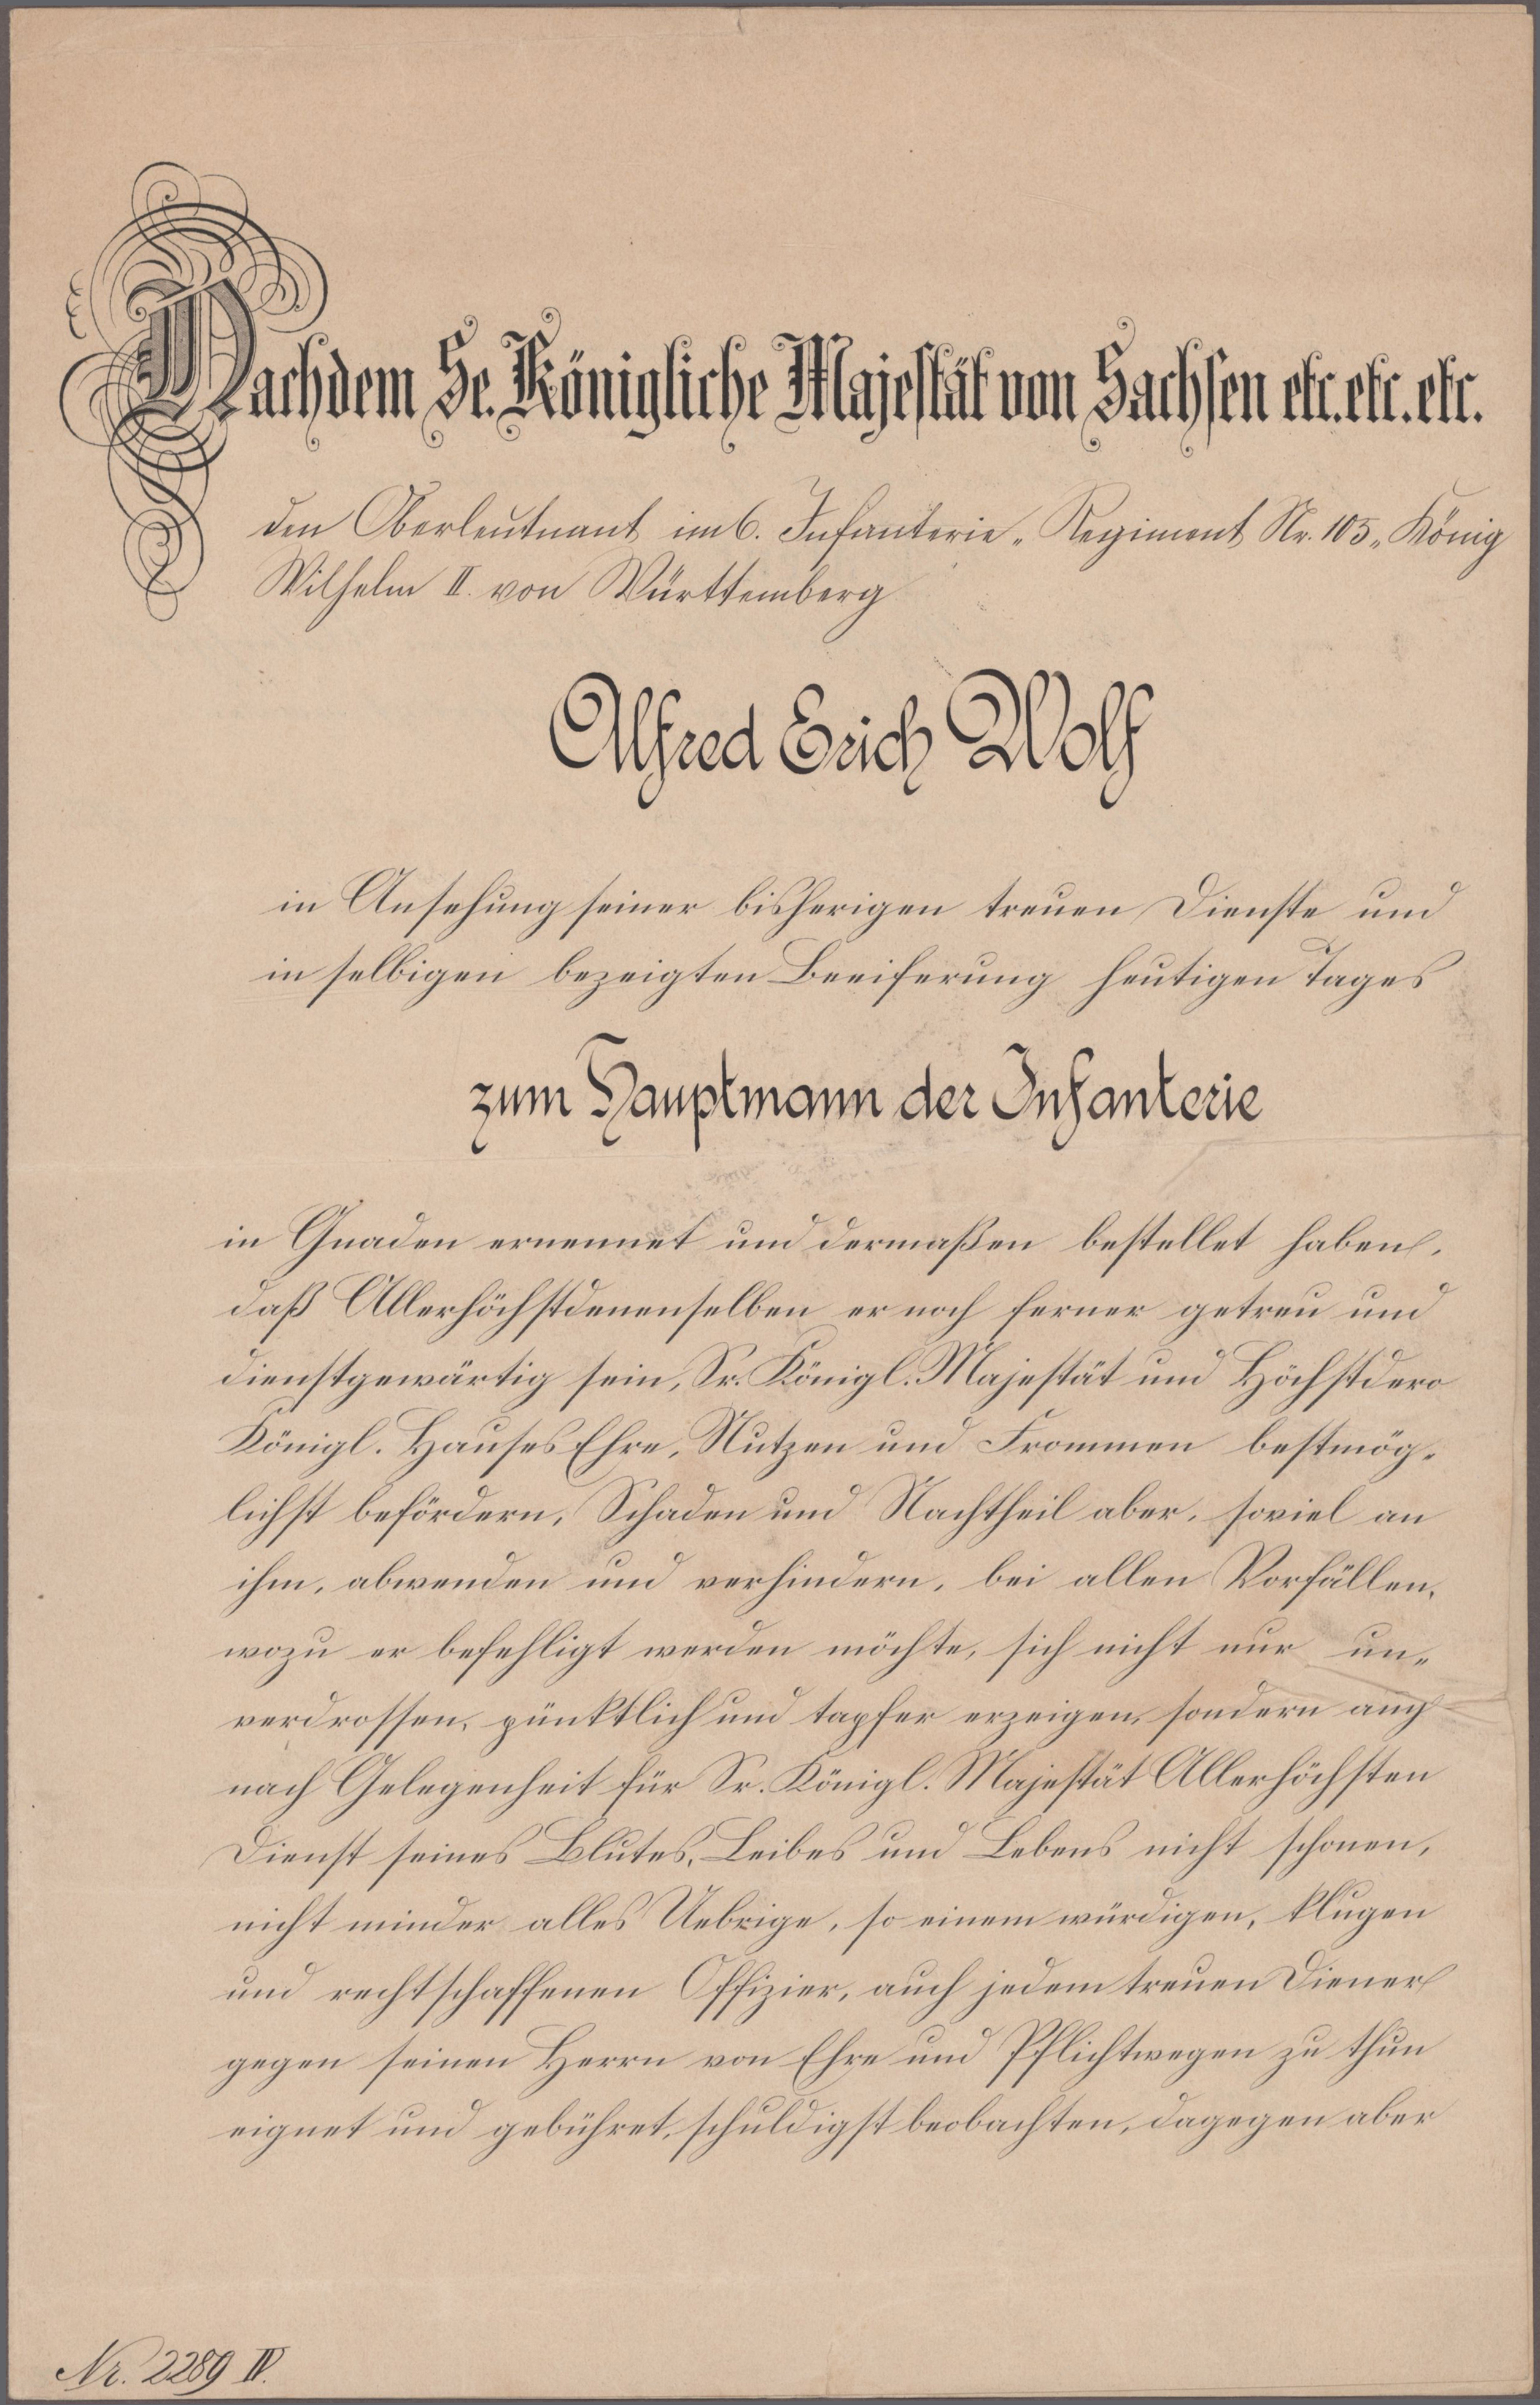 Nachdem Se. Königliche Majestät von Sachsen etc. etc. etc.
den Oberleutnant im 6. Infanterie-Regiment Nr. 105 „König
Wilhelm II. von Württemberg
Alfred Erich Wolf
in Ansehung seiner bisherigen treuen Dienste und
in selbigen bezeigten Beeiferung heutigen Tages
zum Hauptmann der Infanterie
in Gnaden ernennet und dermaßen bestellet haben,
daß Allerhöchstdenenselben er noch ferner getreu und
dienstgewärtig sein, Sr. Königl. Majestät und Höchstdero
Königl. Hauses Ehre, Nutzen und Frommen bestmög-
lichst befördern, Schaden und Nachtheil aber, soviel an
ihm, abwenden und verhindern, bei allen Vorfällen,
wozu er befehligt werden möchte, sich nicht nur un-
verdrossen, pünktlich und tapfer erzeigen, sondern auch
nach Gelegenheit für Sr. Königl. Majestät Allerhöchsten
Dienst seines Blutes, Leibes und Lebens nicht schonen,
nicht minder alles Uebrige, so einem würdigen, klugen
und rechtschaffenen Offizier, auch jedem treuen Diener
gegen seinen Herrn von Ehre und Pflichtwegen zu thun
eignet und gebühret, schuldigst beobachten, dagegen aber
Nr. 2289 IV.